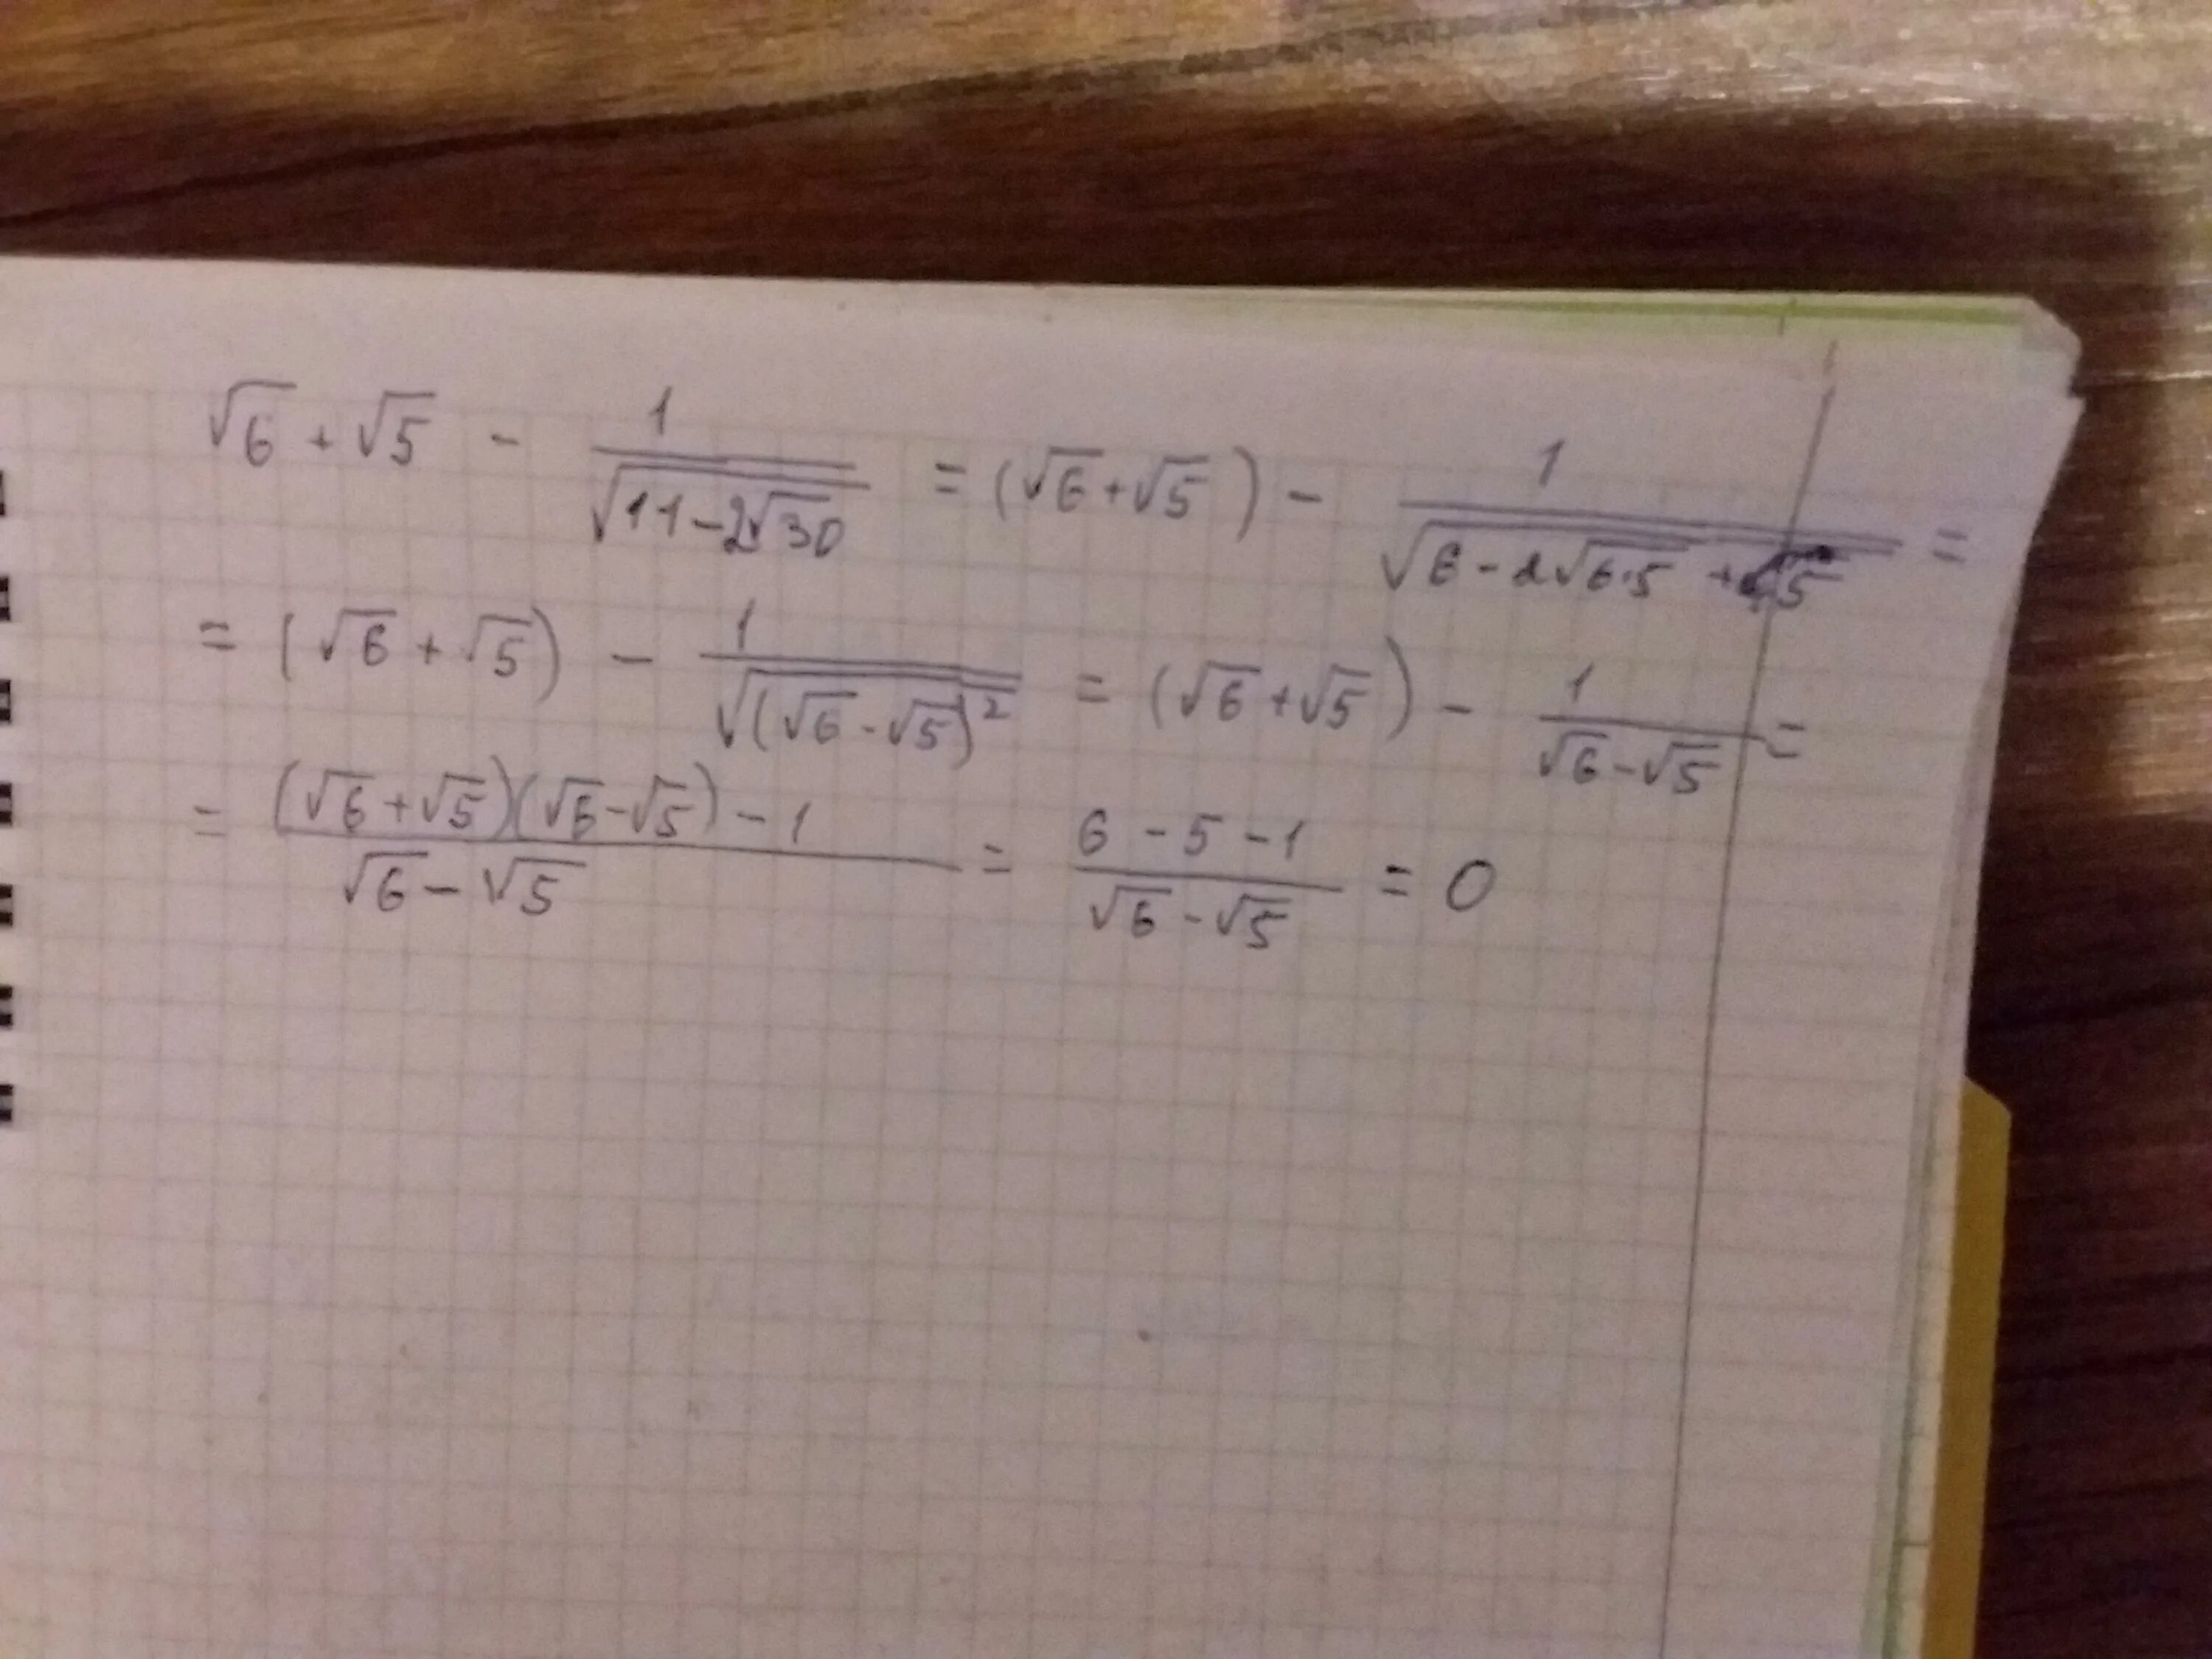 √6 + √5 - 1/√(11-2√30) = (√6+√5) - 1/√(6-2√(6·5)+5) =
= (√6 + √5) - 1/√((√6-√5)²) = (√6+√5) - 1/(√6-√5) =
= ((√6+√5)(√6-√5)-1)/(√6-√5) = (6-5-1)/(√6-√5) = 0